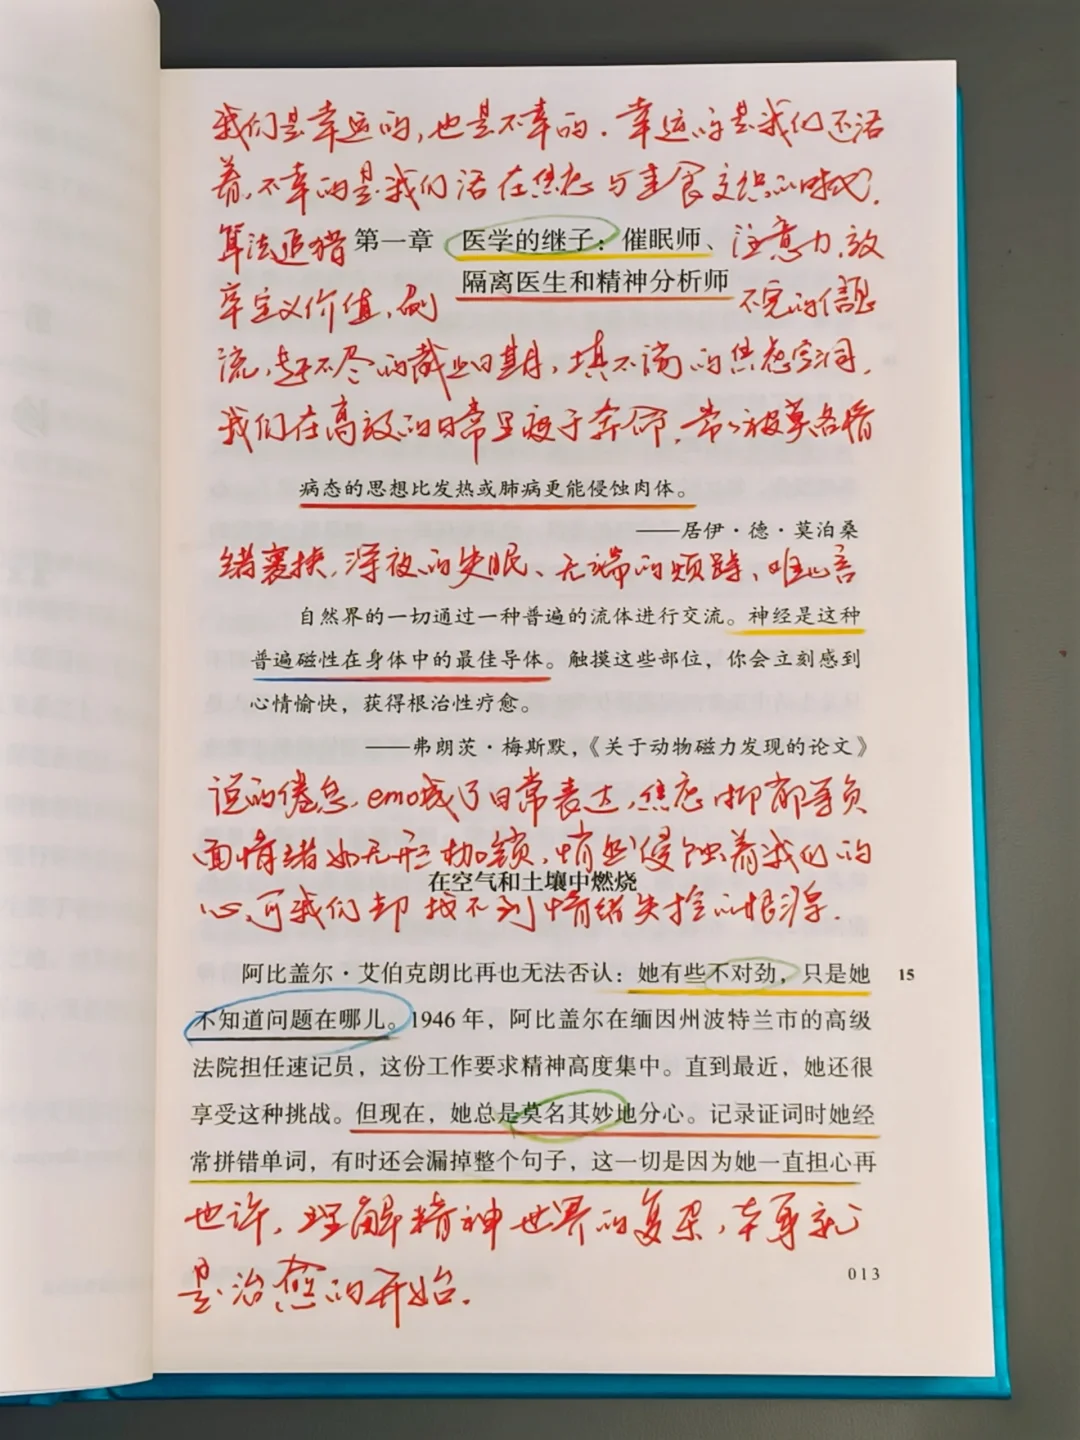 我们是幸运的,也是不幸的.幸运的是我们还活
着,不幸的是我们活在焦虑与毒食交织的时代.
算法追猎 第一章 医学的继子：催眠师、 注意力,效
隔离医生和精神分析师
率定义价值,刷 不完的信息
流,赶不尽的截止日期,填不满的焦虑空洞.
我们在高效的日常里疲于奔命,常常被莫名情
病态的思想比发热或肺病更能侵蚀肉体。
——居伊·德·莫泊桑
绪裹挟,深夜的失眠、无端的烦躁、难以言
自然界的一切通过一种普遍的流体进行交流。神经是这种
普遍磁性在身体中的最佳导体。触摸这些部位，你会立刻感到
心情愉快，获得根治性疗愈。
——弗朗茨·梅斯默，《关于动物磁力发现的论文》
说的倦怠,emo成了日常表达,焦虑抑郁等负
面情绪如无形枷锁,悄然侵蚀着我们的
在空气和土壤中燃烧
心,可我们却找不到情绪失控的根源.
阿比盖尔·艾伯克朗比再也无法否认：她有些不对劲，只是她 15
不知道问题在哪儿。1946 年，阿比盖尔在缅因州波特兰市的高级
法院担任速记员，这份工作要求精神高度集中。直到最近，她还很
享受这种挑战。但现在，她总是莫名其妙地分心。记录证词时她经
常拼错单词，有时还会漏掉整个句子，这一切是因为她一直担心再
也许,理解精神世界的复杂,本身就
013
是治愈的开始.